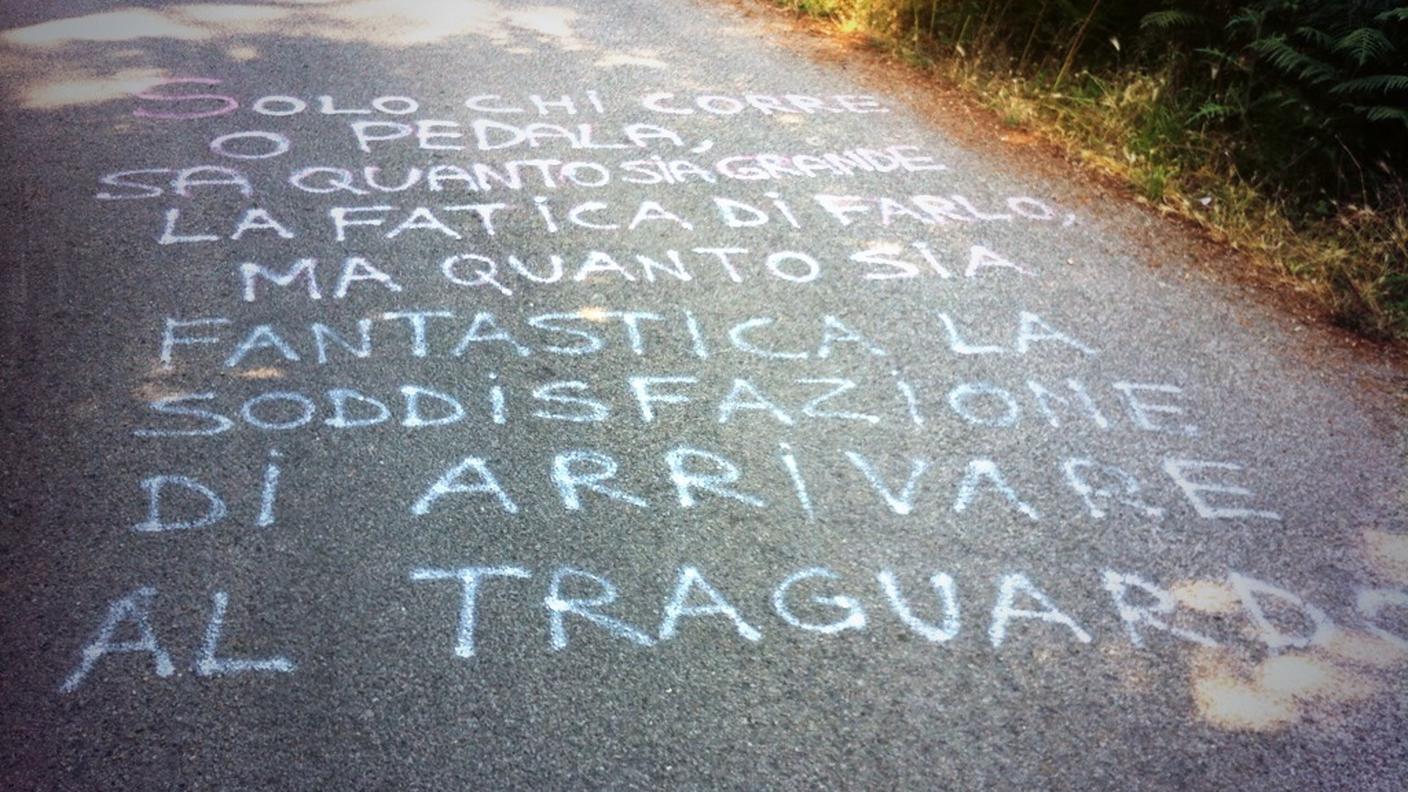 SOLO CHI CORRE
O PEDALA,
SA QUANTO SIA GRANDE
LA FATICA DI FARLO,
MA QUANTO SIA
FANTASTICA LA
SODDISFAZIONE
DI ARRIVARE
AL TRAGUARDO